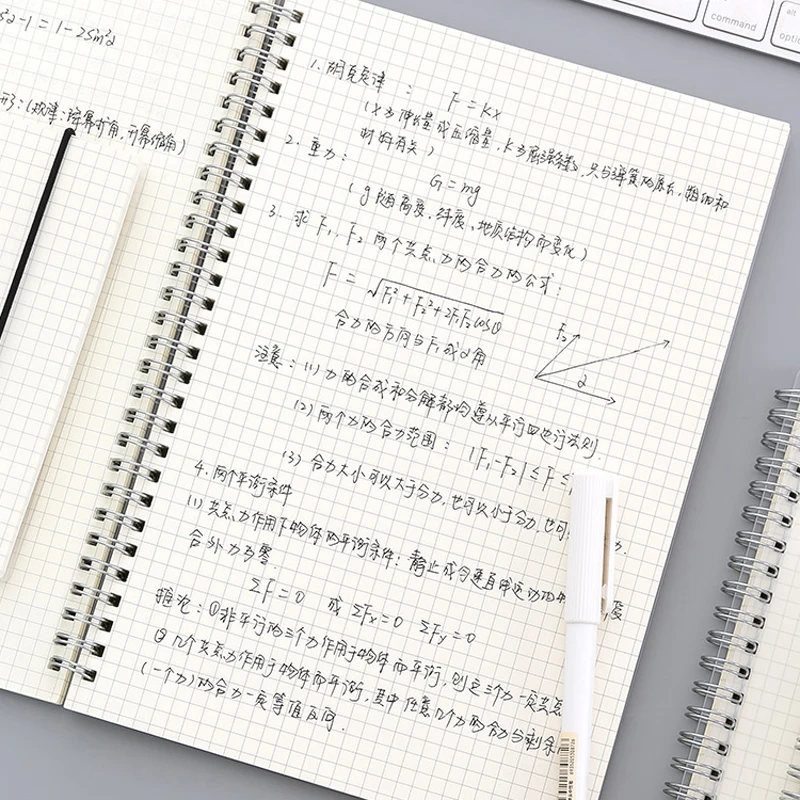 s²α-1=1-2sin²α
形:(规律:降幂扩角,升幂缩角)
1. 胡克定律: F=Kx
(x为伸长量或压缩量,K为倔强系数,只与弹簧的原长、粗细和
材料有关)
2. 重力: G=mg
(g随高度、纬度、地质结构而变化)
3. 求F₁、F₂两个共点力的合力的公式:
F=√F₁²+F₂²+2F₁F₂cosθ
合力的方向与F₁成α角
F₂
α
注意:(1) 力的合成和分解都均遵从平行四边行法则.
(2) 两个力的合力范围: |F₁-F₂|≤F≤
(3) 合力大小可以大于分力,也可以小于分力,也可 力.
4. 两个平衡条件
(1) 共点力作用下物体的平衡条件:静止或匀速直线运动的
合外力为零.
ΣF=0 或 ΣFx=0 ΣFy=0
推论:①非平行的三个力作用于物体而平衡,则这三个力一定共点
② 几个共点力作用于物体而平衡,其中任意几个力的合力与剩余
(一个力)的合力一定等值反向.
command
alt
option